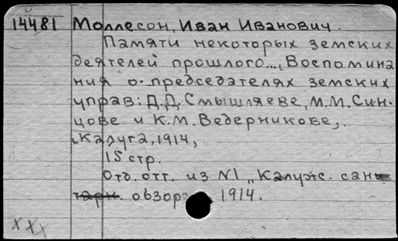 14481 Моллесон, Иван Иванович.
Памяти некоторых земских
деятелей прошлого... (Воспомина
ния о председателях земских
управ: Д.Д. Смышляеве, М.М. Син-
цове и К.М. Ведерникове).
Калуга, 1914,
15 стр.
Отд. отт. из N1 „Калуж. сани-
тарн. обзора" 1914.
XXX